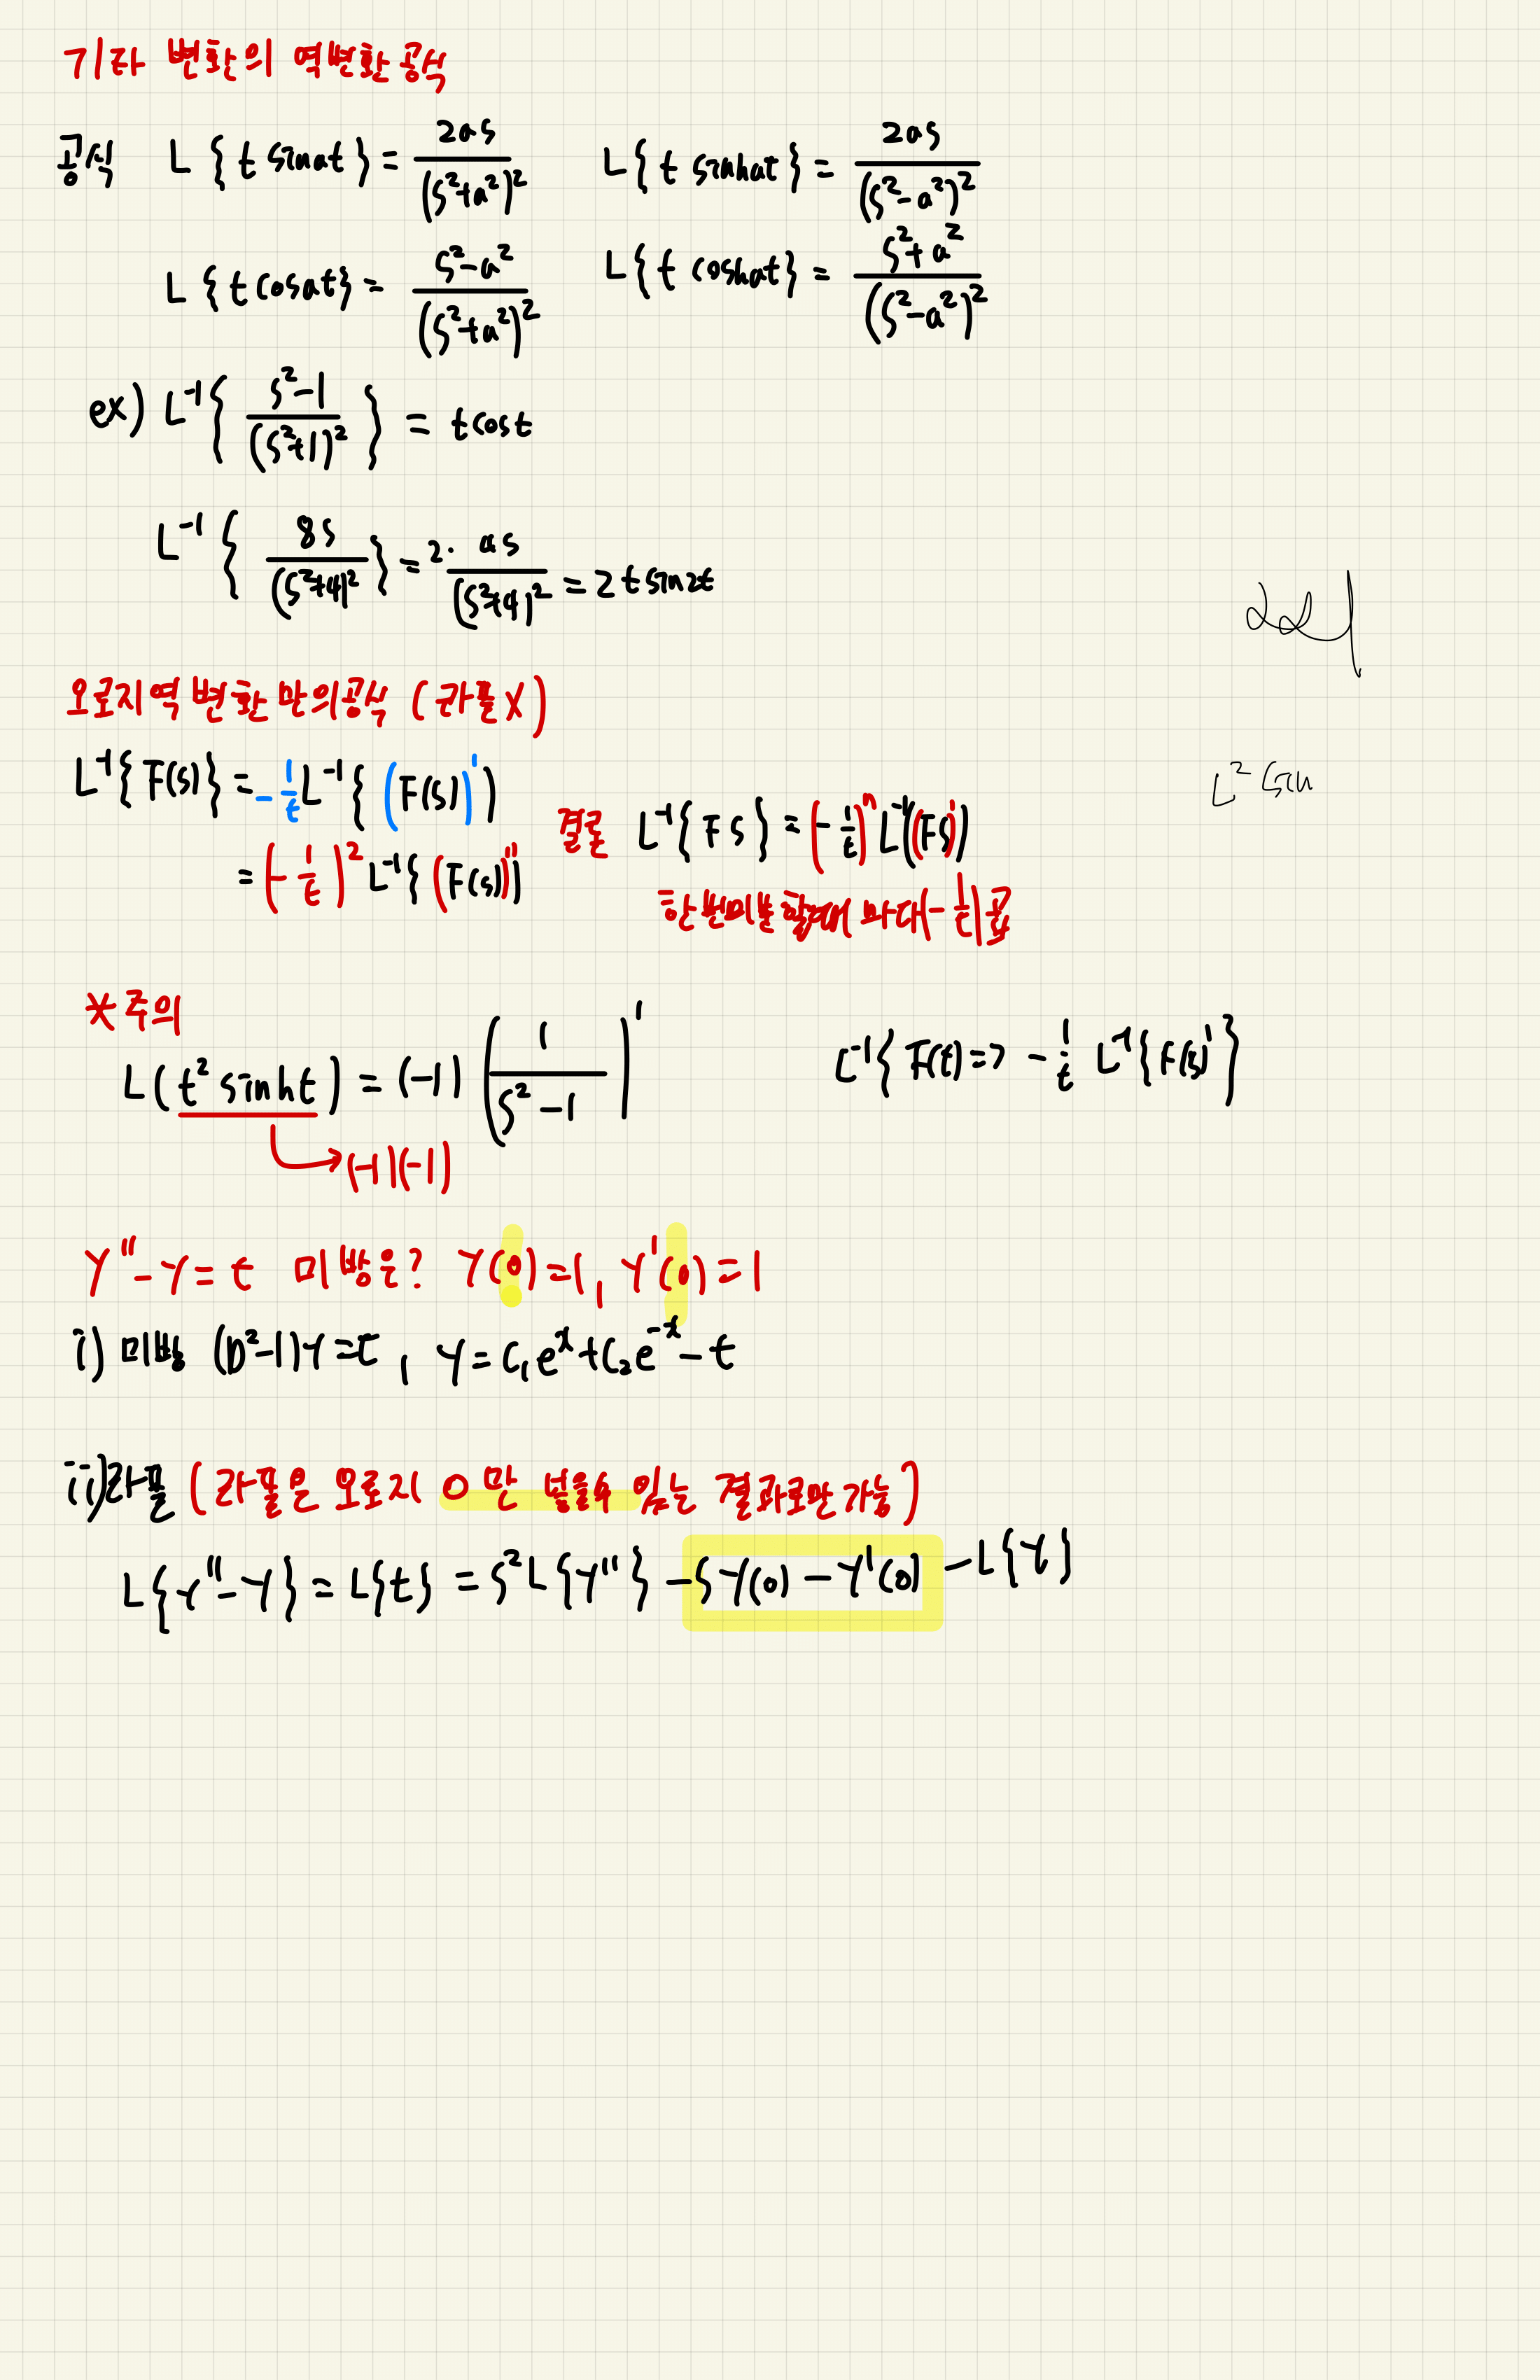 기타 변환의 역변환 공식
공식 L{t sinat} = 2as/(s²+a²)² L{t sinhat} = 2as/(s²-a²)²
L{t cosat} = s²-a²/(s²+a²)² L{t coshat} = s²+a²/(s²-a²)²
ex) L⁻¹{s²-1/(s²+1)²} = tcost
L⁻¹{8s/(s²+4)²} = 2· as/(s²+4)² = 2tsin2t
오로지 역변환 만의 공식 (라플X)
L⁻¹{F(s)} = -1/t L⁻¹{(F(s))'}
= (-1/t)² L⁻¹{(F(s))''}
결론 L⁻¹{Fs} = (-1/t)ⁿ L⁻¹((Fs)')
한번미분 할때 마다 (-1/t)곱
*주의
L(t² sinht) = (-1)(1/s²-1)'
→ (-1)(-1)
L⁻¹{F(t) => -1/t L⁻¹{F(s)'}
Y''-Y=t 미방은? Y(0)=1, Y'(0)=1
i) 미방 (D²-1)Y=t, Y=C₁eˣ+C₂e⁻ˣ-t
ii) 라플 (라플은 오로지 0만 넣을수 있는 결과로만 가능)
L{Y''-Y} = L{t} = s²L{Y''} -sY(0) -Y'(0) -L{Y}